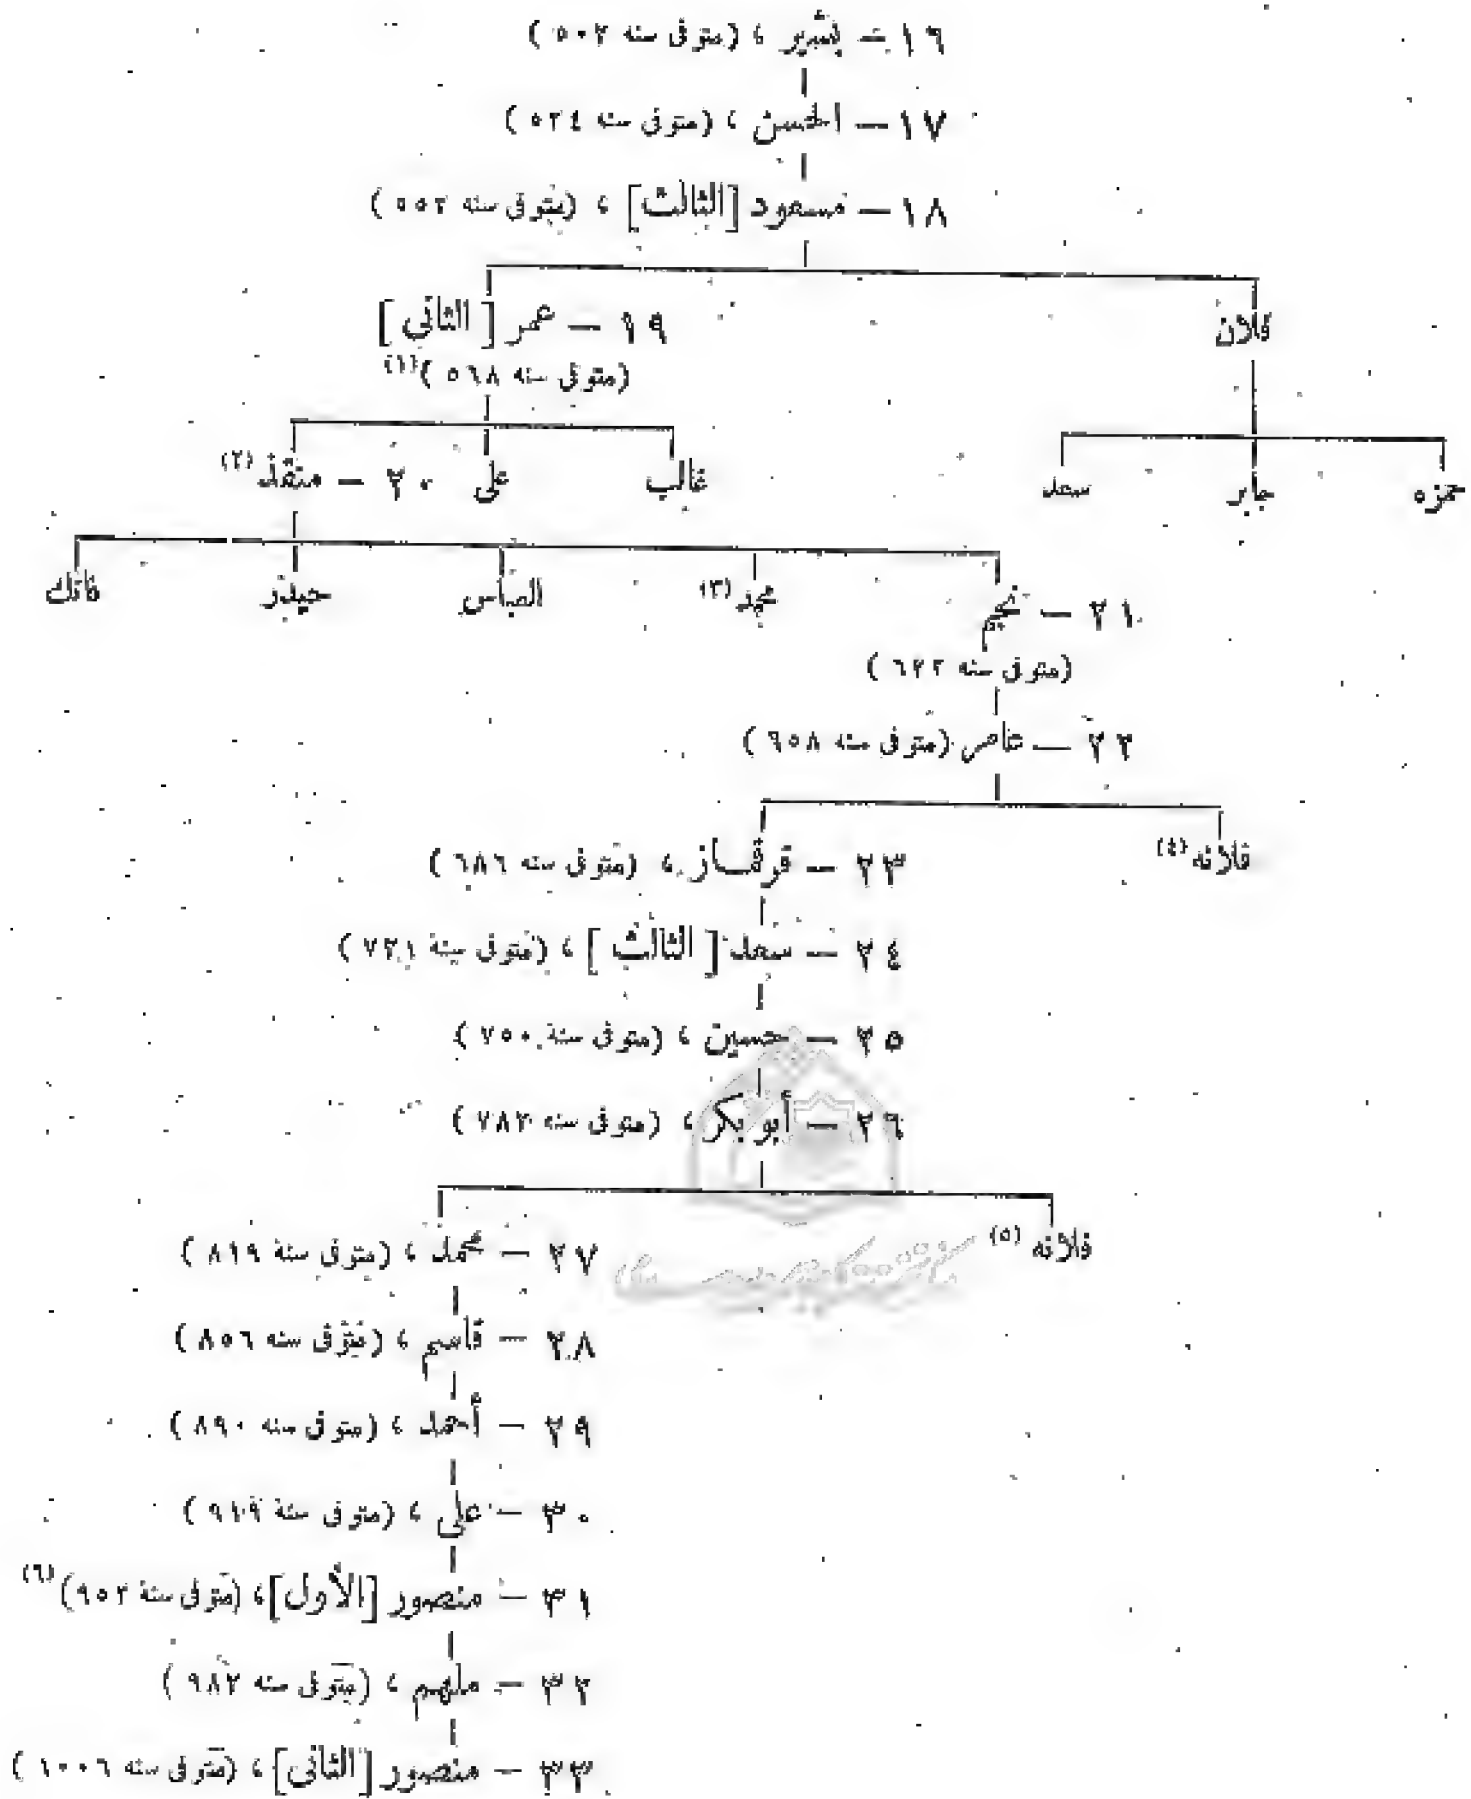 ١٦ – بشير ، (متوفى سنه ٥٠٢)
١٧ – الحسن ، (متوفى سنه ٥٢٤)
١٨ – مسعود [الثالث] ، (متوفى سنه ٥٥٢)
فلان
١٩ – عمر [الثاني]
(متوفى سنه ٥٦٨)(١)
حمزه جابر سعد
غالب على ٢٠ – منقذ(٢)
٢١ – نجيم محمد(٣) العباس حيدر فاتك
(متوفى سنه ٦٢٢)
٢٢ – عامر (متوفى سنه ٦٥٨)
فلانه(٤)
٢٣ – قرقماز ، (متوفى سنه ٦٨٦)
٢٤ – سعد [الثالث] ، (متوفى سنة ٧٢١)
٢٥ – حسين ، (متوفى سنة ٧٥٠)
٢٦ – أبو بكر ، (متوفى سنه ٧٨٢)
فلانه(٥)
٢٧ – محمد ، (متوفى سنة ٨١٩)
٢٨ – قاسم ، (متوفى سنه ٨٥٦)
٢٩ – أحمد ، (متوفى سنه ٨٩٠)
٣٠ – على ، (متوفى سنة ٩١٩)
٣١ – منصور [الأول] ، (متوفى سنة ٩٥٢)(٦)
٣٢ – ملهم ، (متوفى سنه ٩٨٢)
٣٣ – منصور [الثانى] ، (متوفى سنه ١٠٠٦)